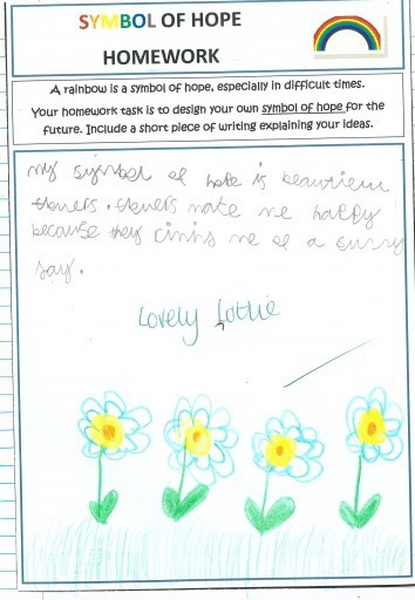 SYMBOL OF HOPE
HOMEWORK
A rainbow is a symbol of hope, especially in difficult times.
Your homework task is to design your own symbol of hope for the
future. Include a short piece of writing explaining your ideas.
my symbol of hope is beautiful
flowers. flowers make me happy
because they rimins me of a sunny
say.
Lovely Lottie